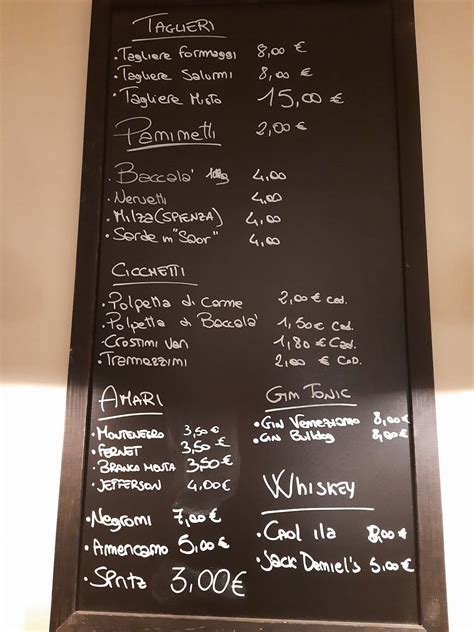 TAGLIERI
• Tagliere Formaggi 8,00 €
• Tagliere Salumi 8,00 €
• Tagliere Misto 15,00 €
Paninetti 2,00 €
• Baccala' 100g 4,00
• Nervetti 4,00
• Milza (SPIENZA) 4,00
• Sarde in "Saor" 4,00
CICCHETTI
• Polpetta di Carne 2,00 € Cad.
• Polpetta di Baccala' 1,50 € Cad.
• Crostini Vari 1,80 € Cad.
• Tramezzini 2,00 € CaD.
AMARI
• MONTENEGRO 3,50 €
• FERNET 3,50 €
• BRANCA MENTA 3,50 €
• JEFFERSON 4,00 €
• Negroni 7,00 €
• Americano 5,00 €
• Spritz 3,00 €
GIN TONIC
• GIN VENEZIANO 8,00 €
• GIN Bulldog 8,00 €
WHISKEY
• CAOL ila 8,00 €
• Jack Daniel's 5,00 €